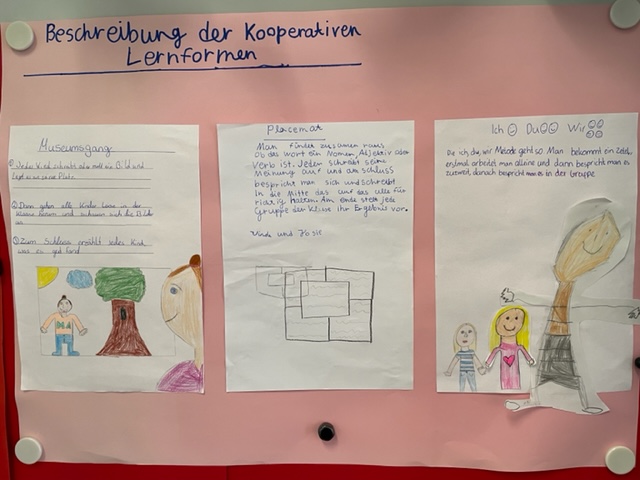 Beschreibung der Kooperativen
Lernformen
Museumsgang
① Jedes Kind schreibt oder malt ein Bild und
legt es an seine Platz
② Dann gehen alle Kinder Leise in der
Klasse herum und schauen sich die Bilder
an
③ Zum Schluss erzählt jedes Kind
was es gut fand
Placemat
Man findet zusammen raus
Ob das Wort ein Nomen, Adjektiv oder
Verb ist. Jeder schreibt seine
Meinung auf und am schluss
bespricht man sich und schreibt
In die Mitte das was das alle für
richtig halten. Am ende stellt jede
Gruppe der Klasse ihr Ergebnis vor.
und
Ich Du Wir
Die ich, du, wir Methode geht so Man bekommt ein Zettel,
erstmal arbeitet man alleine und dann bespricht man es
zuzweit, danach bespricht man es in der Gruppe